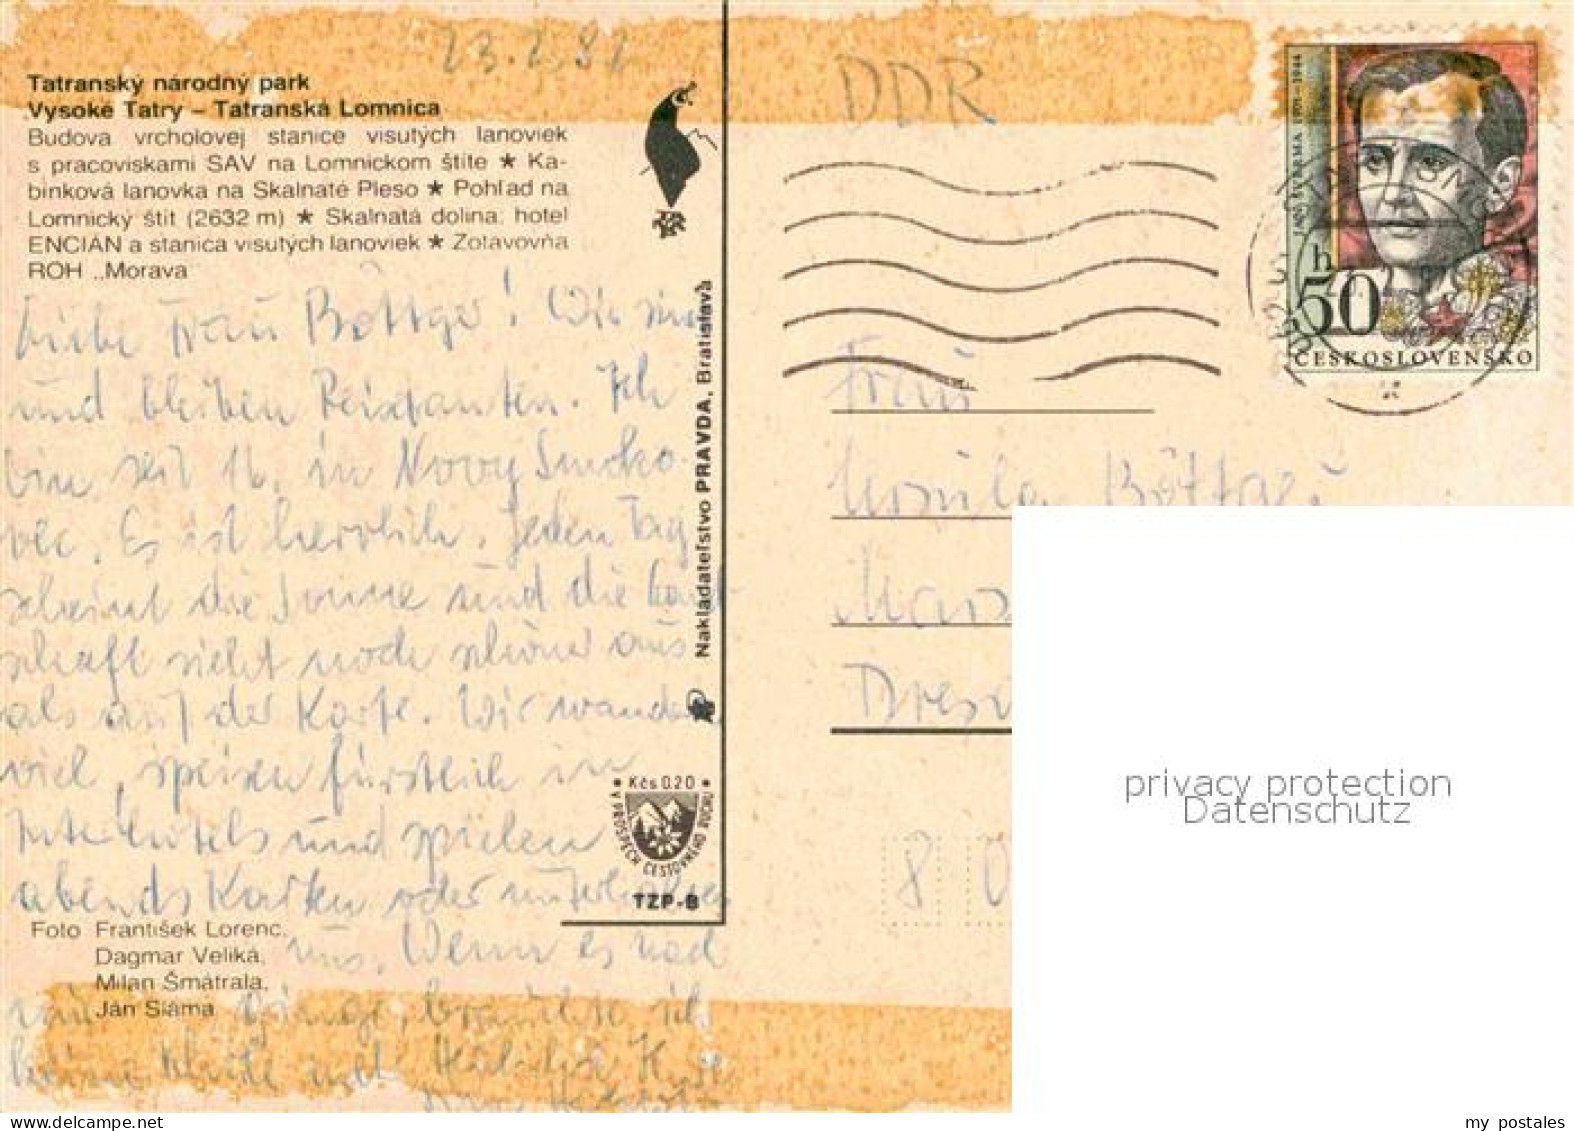 23.2.82
Tatranský národný park
Vysoké Tatry – Tatranská Lomnica
Budova vrcholovej stanice visutých lanoviek
s pracoviskami SAV na Lomnickom štíte ★ Ka-
binková lanovka na Skalnaté Pleso ★ Pohľad na
Lomnický štít (2632 m) ★ Skalnatá dolina: hotel
ENCIÁN a stanica visutých lanoviek ★ Zotavovňa
ROH „Morava"
Liebe Frau Böttger! Wir sind
und bleiben Reisetanten. Ich
bin seit 16. in Novy Smoko-
vec. Es ist herrlich. Jeden Tag
scheint die Sonne und die Land-
schaft sieht noch schöner aus
als auf der Karte. Wir wandern
viel, speisen fürstlich in
Interhotels und spielen
abends Karten oder unterhalten
uns. Wenn es nach
mir ginge, brauchte ich
keine Leute mehr
Foto František Lorenc,
Dagmar Veliká,
Milan Šmátrala,
Ján Sláma
Nakladateľstvo PRAVDA, Bratislava
Kčs 0.20
V PROSPECH CESTOVNÉHO RUCHU
TZP-B
DDR
JAN ŠVERMA 1901–1944
50 h
ČESKOSLOVENSKO
Frau
Ursula Böttger
Dresd
8 0
privacy protection
Datenschutz
my postales